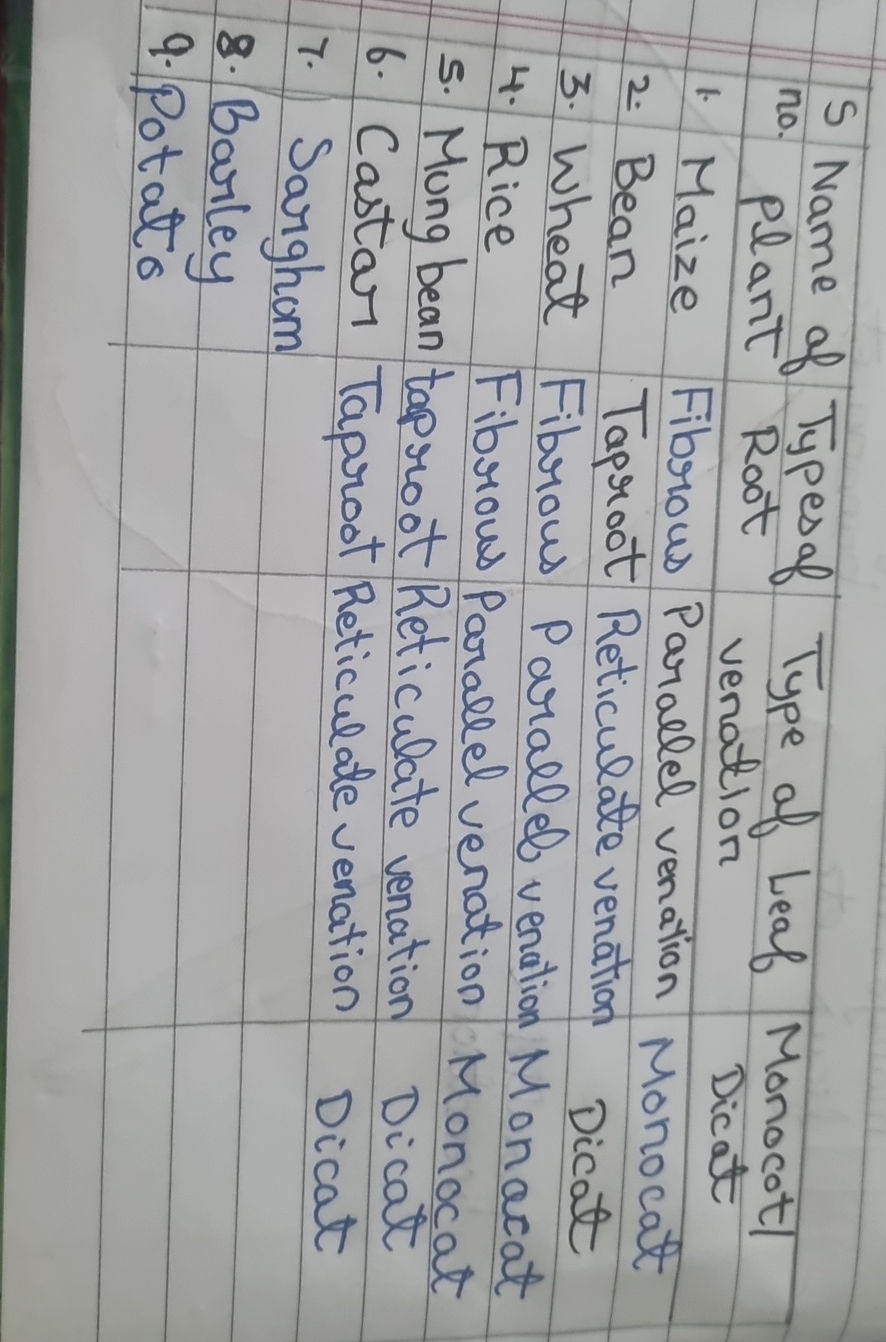 S no. Name of plant Types of Root Type of Leaf venation Monocot/ Dicat
1. Maize Fibrous Parallel venation Monocat
2. Bean Taproot Reticulate venation Dicat
3. Wheat Fibrous Parallel venation Monacat
4. Rice Fibrous Parallel venation Monocat
5. Mung bean taproot Reticulate venation Dicat
6. Castar Taproot Reticulate venation Dicat
7. Sarghum
8. Barley
9. Potato